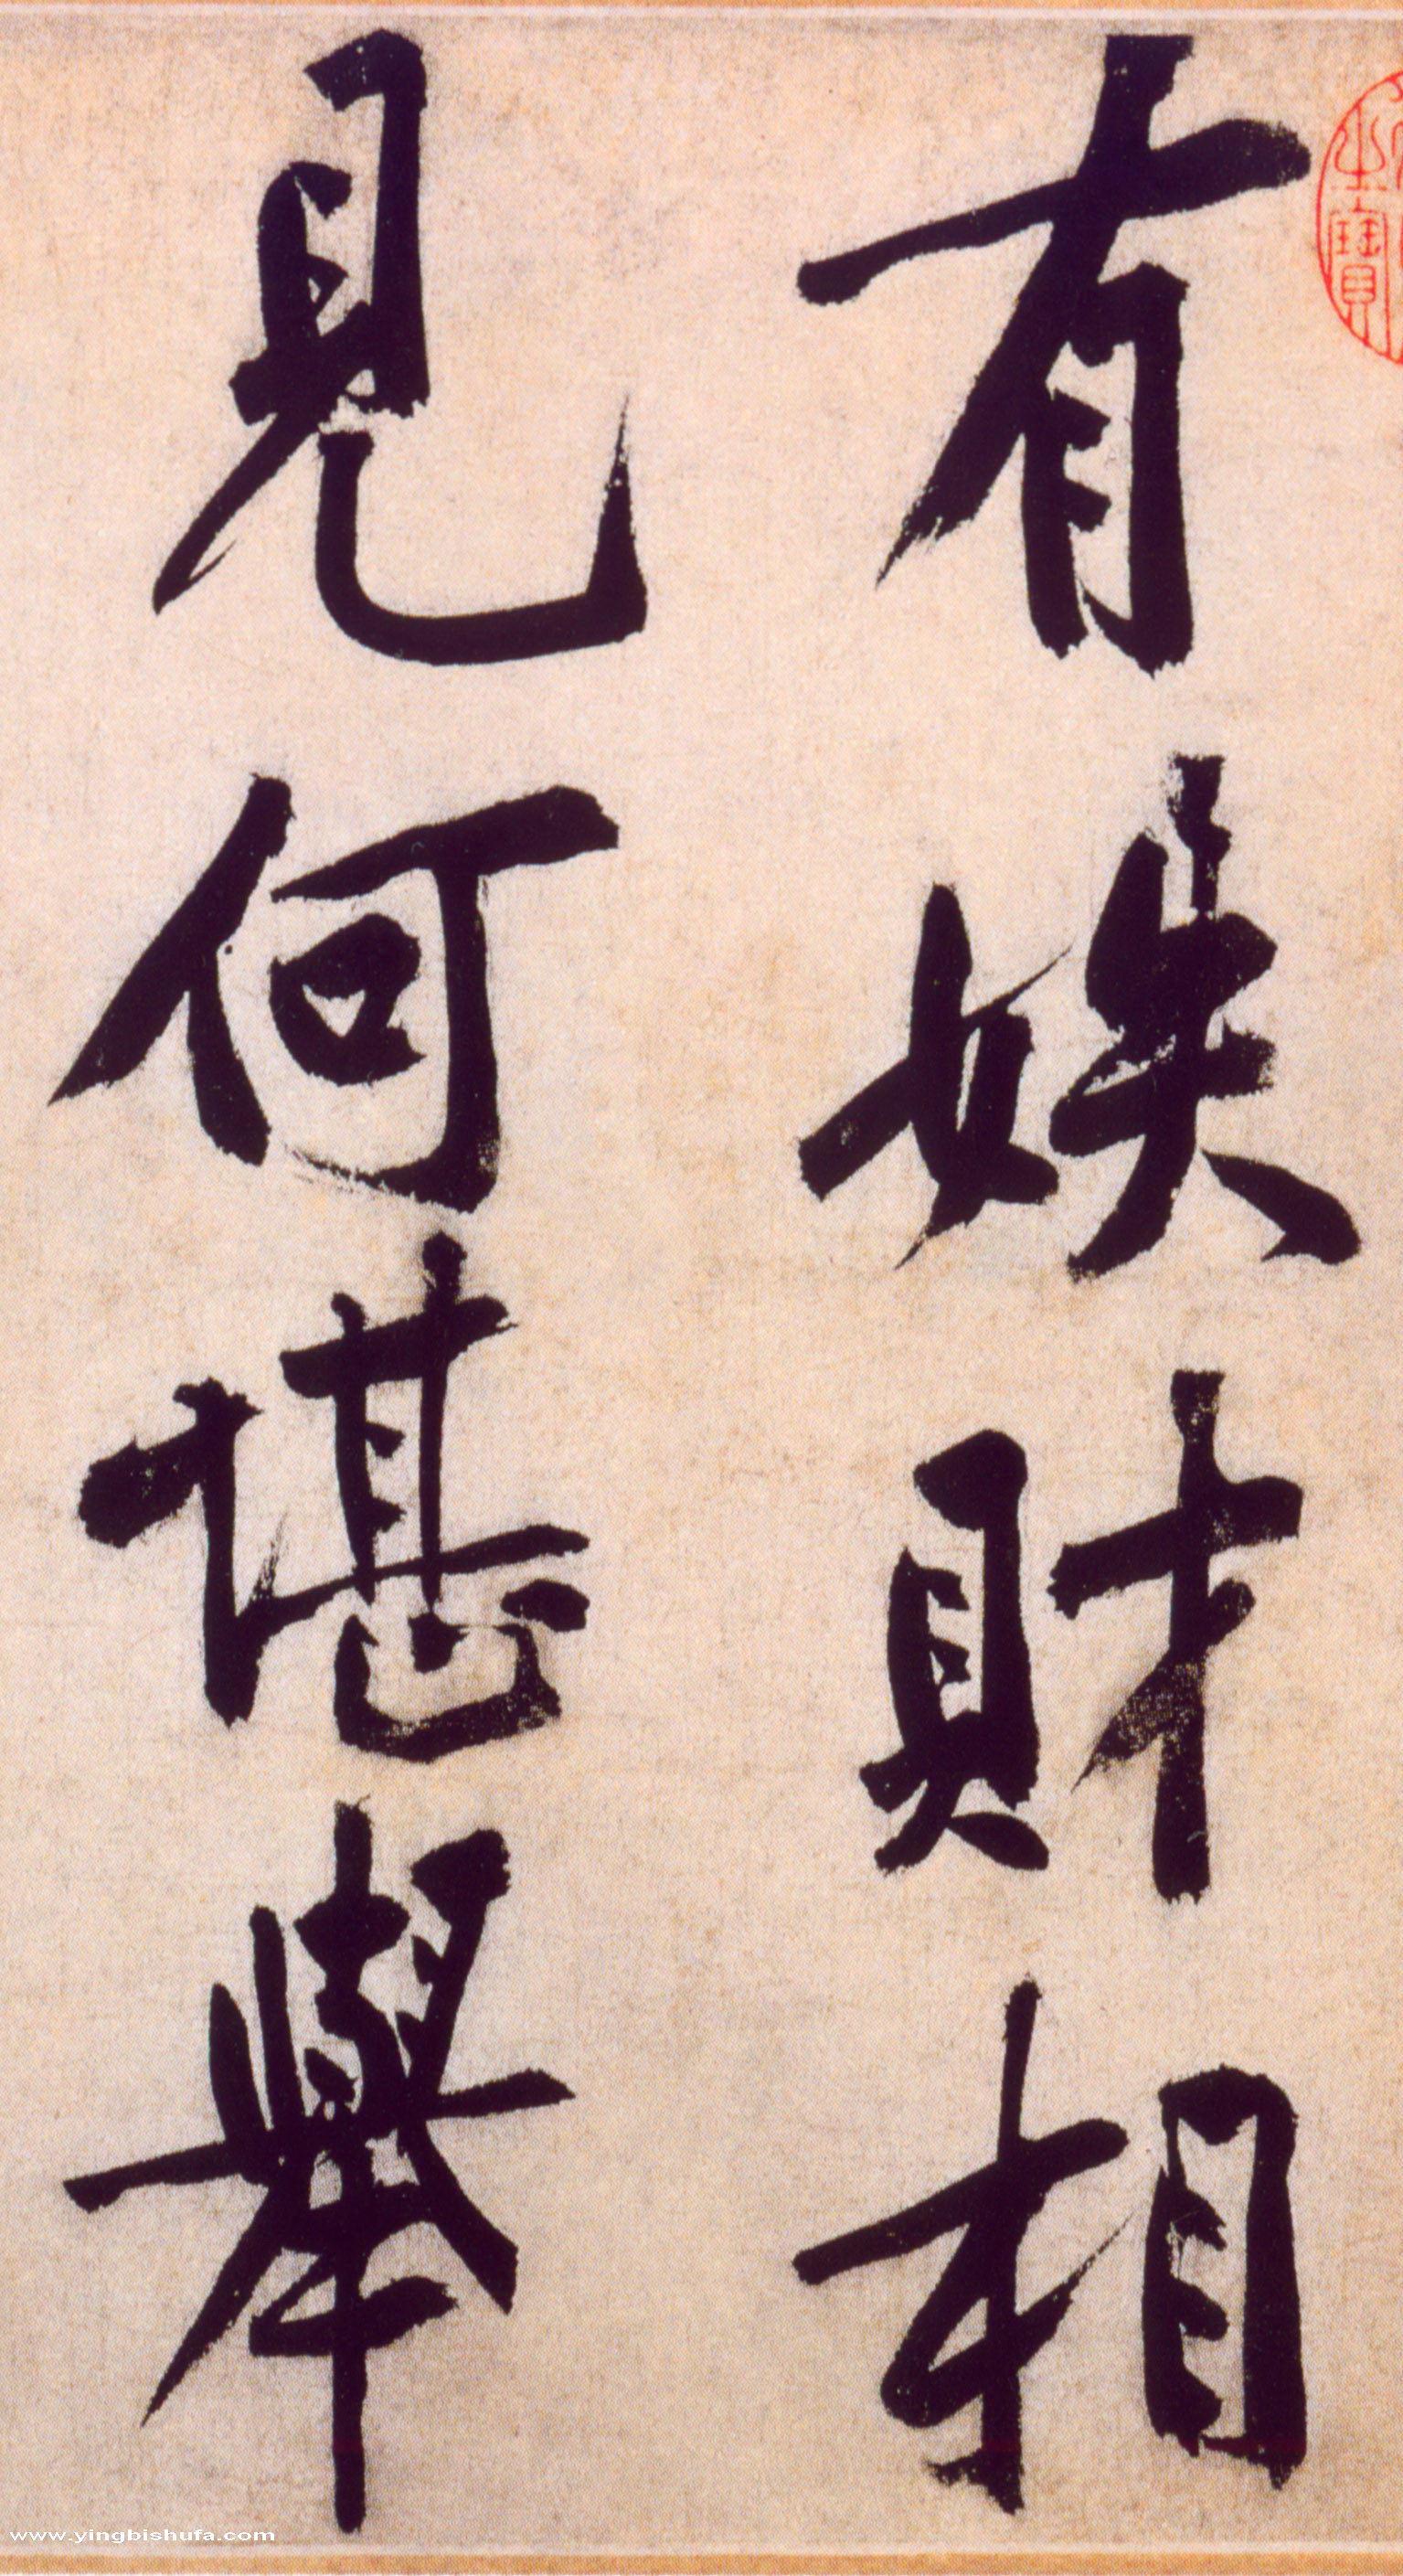 有財相
見何堪舉
www.yingbishufa.com